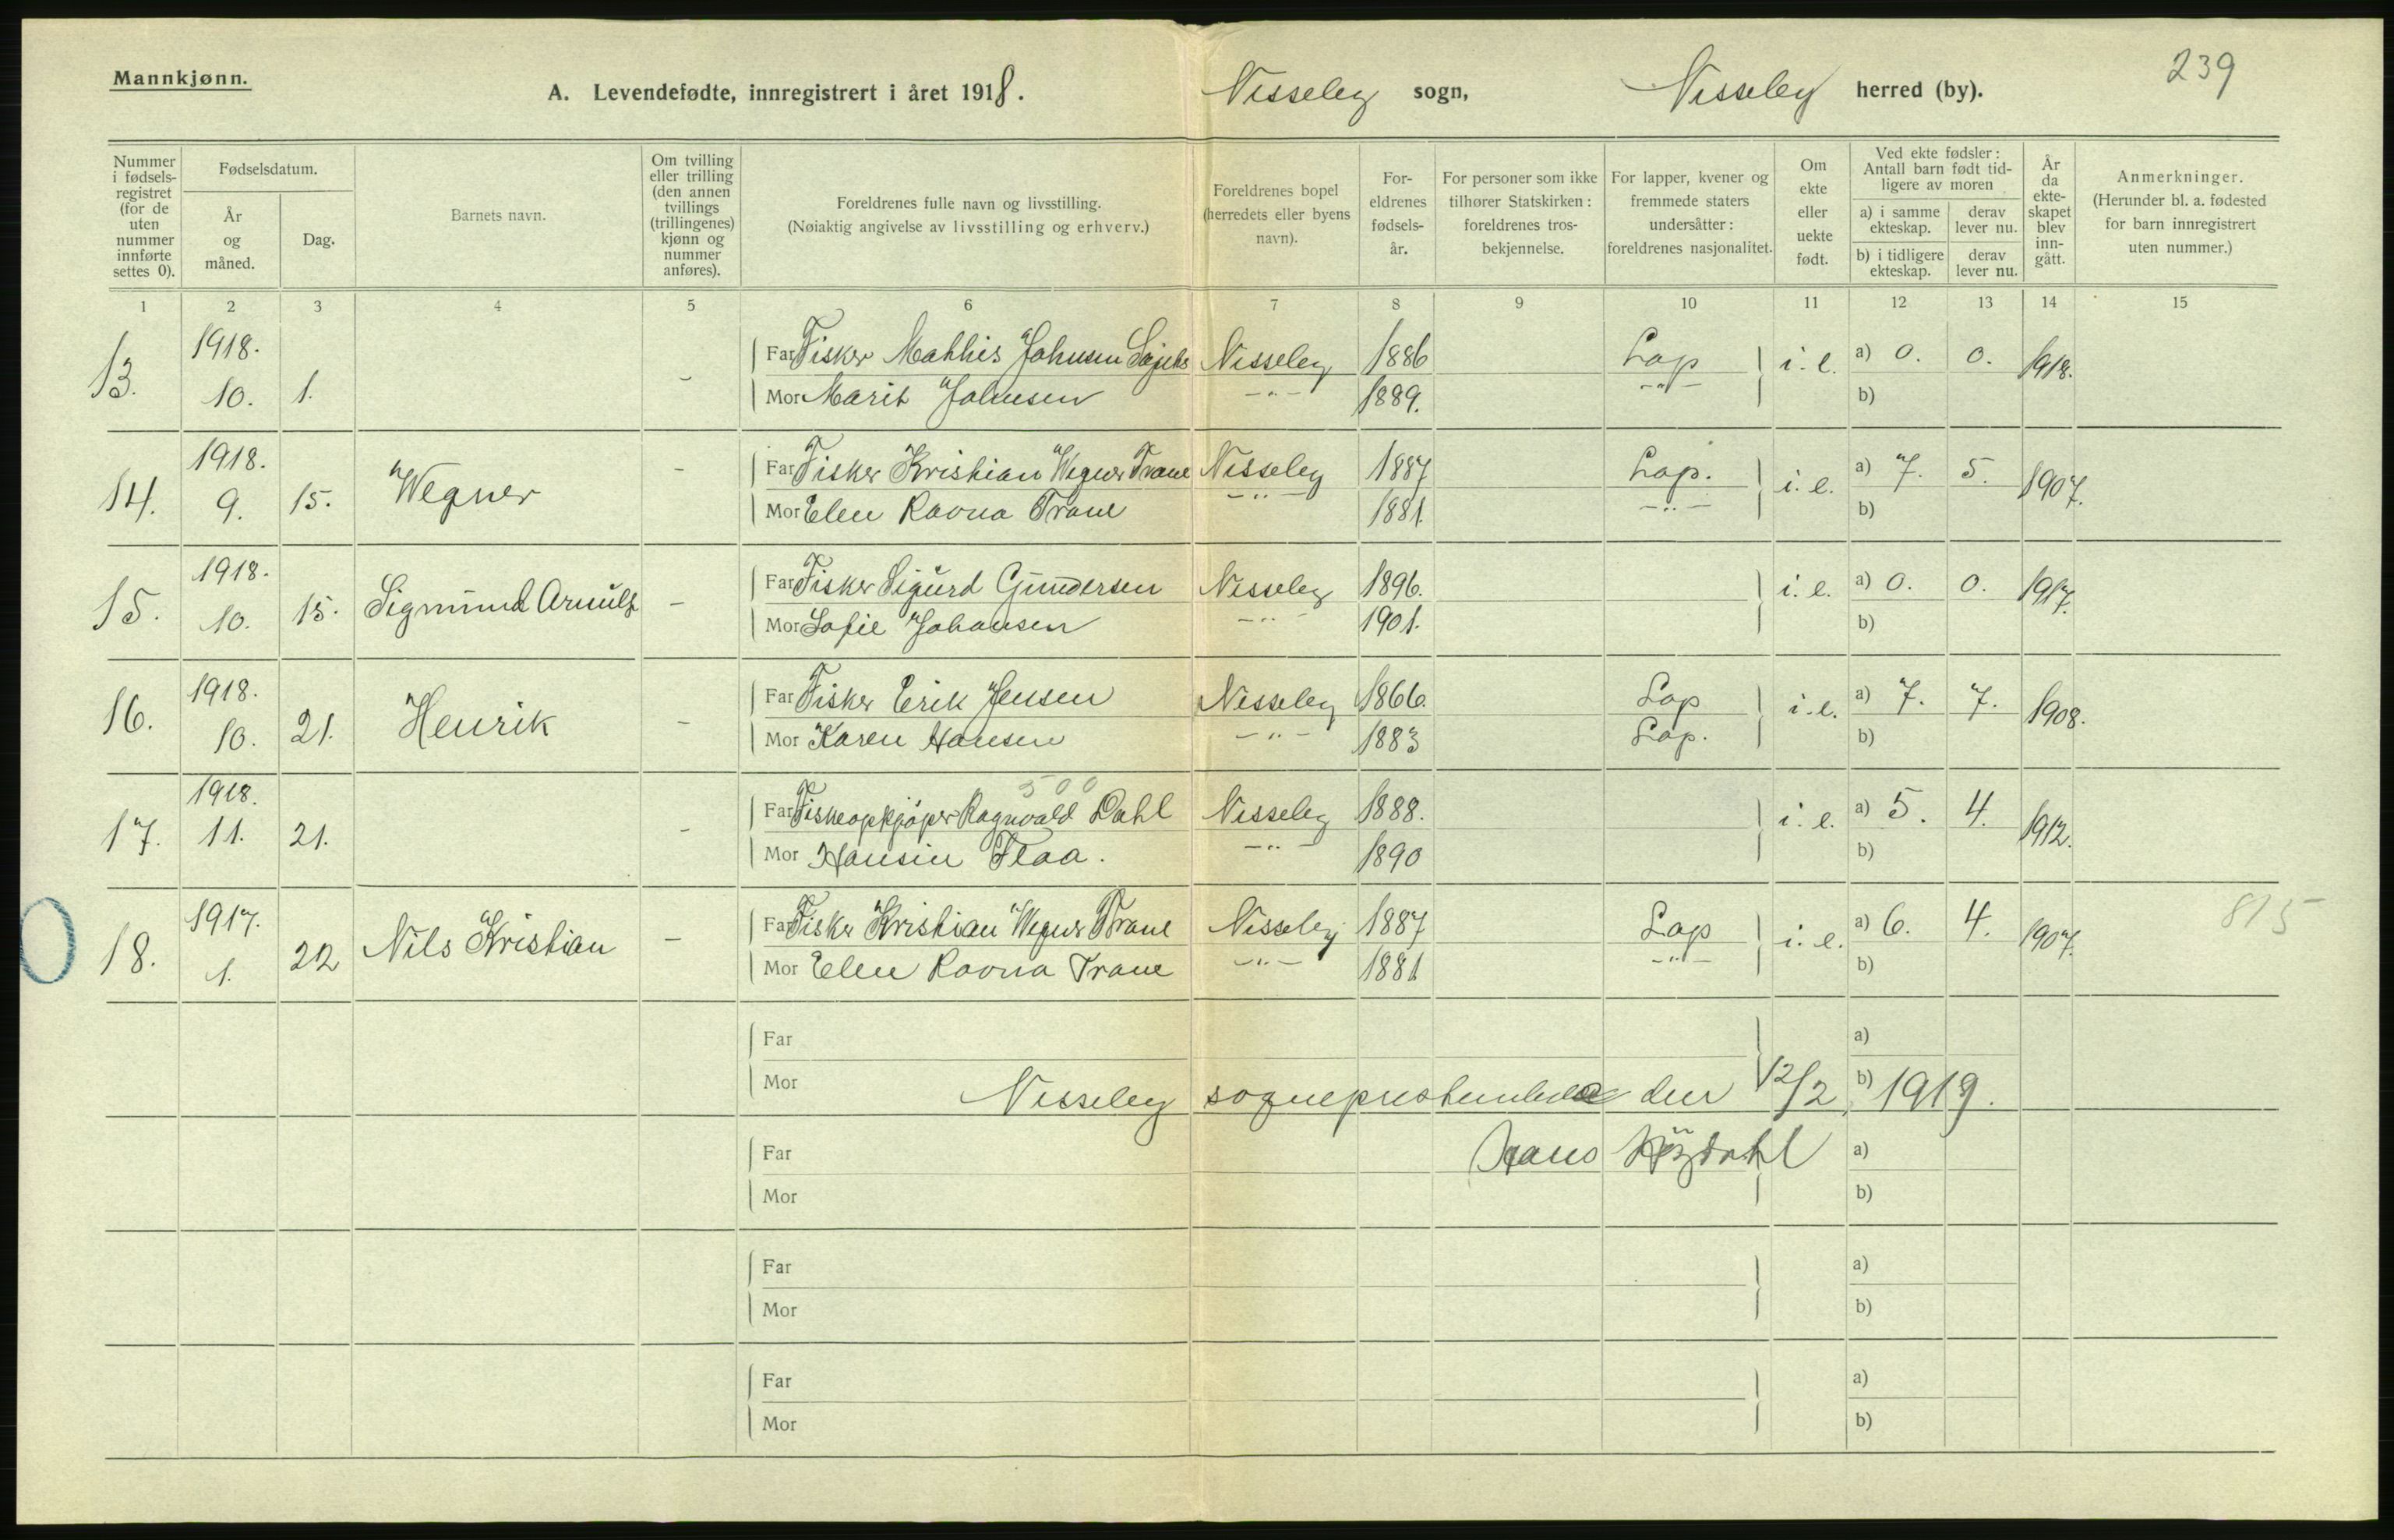 Mannkjønn.
A. Levendefødte, innregistrert i året 1918.
Nesseby sogn, Nesseby herred (by).
239
Nummer i fødselsregistret (for de uten nummer innførte settes 0).
Fødselsdatum.
År og måned.
Dag.
Barnets navn.
Om tvilling eller trilling (den annen tvillings (trillingenes) kjønn og nummer anføres).
Foreldrenes fulle navn og livsstilling.
(Nøiaktig angivelse av livsstilling og erhverv.)
Foreldrenes bopel (herredets eller byens navn).
Foreldrenes fødselsår.
For personer som ikke tilhører Statskirken: foreldrenes trosbekjennelse.
For lapper, kvener og fremmede staters undersåtter: foreldrenes nasjonalitet.
Om ekte eller uekte født.
Ved ekte fødsler: Antall barn født tidligere av moren
a) i samme ekteskap. derav lever nu.
b) i tidligere ekteskap. derav lever nu.
År da ekteskapet blev inngått.
Anmerkninger.
(Herunder bl. a. fødested for barn innregistrert uten nummer.)
1 2 3 4 5 6 7 8 9 10 11 12 13 14 15
13. 1918. 10. 1. - Far Fisker Mathis Johnsen Nesseby 1886 Lap i. e. a) 0. 0. 1918.
Mor Marit Johnsen -"- 1889. -"- b)
14. 1918. 9. 15. Wegner - Far Fisker Kristian Wegner Trane Nesseby 1887 Lap. i. e. a) 7. 5. 1907.
Mor Elen Ravna Trane -"- 1881. -"- b)
15. 1918. 10. 15. Sigmund Arnulf - Far Fisker Sigurd Gundersen Nesseby 1896. i. e. a) 0. 0. 1917.
Mor Sofie Johansen -"- 1901. b)
16. 1918. 10. 21. Henrik - Far Fisker Erik Jensen Nesseby 1866. Lap i. e. a) 7. 7. 1908.
Mor Karen Hansen -"- 1883 Lap. b)
500
17. 1918. 11. 21. - Far Fiskeopkjøper Ragnvald Dahl Nesseby 1888. i. e. a) 5. 4. 1912.
Mor Hansin Flaa. -"- 1890 b)
18. 1917. 1. 22 Nils Kristian - Far Fisker Kristian Wegner Trane Nesseby 1887 Lap i. e. a) 6. 4. 1907. 815
Mor Elen Ravna Trane -"- 1881 -"- b)
Far a)
Mor Nesseby sogneprestembede den 12/2 b) 1919.
Far Hans a)
Mor b)
Far a)
Mor b)
Far a)
Mor b)